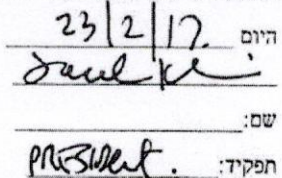 היום 23/2/17.
שם:
תפקיד: PRESIDENT.